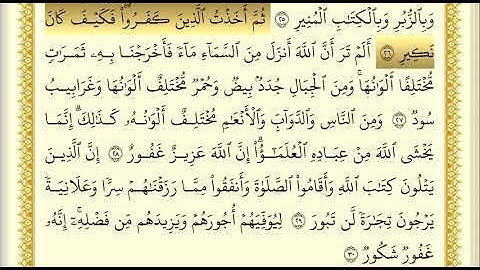 وَبِٱلزُّبُرِ وَبِٱلْكِتَٰبِ ٱلْمُنِيرِ ٢٥ ثُمَّ أَخَذْتُ ٱلَّذِينَ كَفَرُوا۟ ۖ فَكَيْفَ كَانَ
نَكِيرِ ٢٦ أَلَمْ تَرَ أَنَّ ٱللَّهَ أَنزَلَ مِنَ ٱلسَّمَآءِ مَآءً فَأَخْرَجْنَا بِهِۦ ثَمَرَٰتٍ
مُّخْتَلِفًا أَلْوَٰنُهَا ۚ وَمِنَ ٱلْجِبَالِ جُدَدٌۢ بِيضٌ وَحُمْرٌ مُّخْتَلِفٌ أَلْوَٰنُهَا وَغَرَابِيبُ
سُودٌ ٢٧ وَمِنَ ٱلنَّاسِ وَٱلدَّوَآبِّ وَٱلْأَنْعَٰمِ مُخْتَلِفٌ أَلْوَٰنُهُۥ كَذَٰلِكَ ۗ إِنَّمَا
يَخْشَى ٱللَّهَ مِنْ عِبَادِهِ ٱلْعُلَمَٰٓؤُا۟ ۗ إِنَّ ٱللَّهَ عَزِيزٌ غَفُورٌ ٢٨ إِنَّ ٱلَّذِينَ
يَتْلُونَ كِتَٰبَ ٱللَّهِ وَأَقَامُوا۟ ٱلصَّلَوٰةَ وَأَنفَقُوا۟ مِمَّا رَزَقْنَٰهُمْ سِرًّا وَعَلَانِيَةً
يَرْجُونَ تِجَٰرَةً لَّن تَبُورَ ٢٩ لِيُوَفِّيَهُمْ أُجُورَهُمْ وَيَزِيدَهُم مِّن فَضْلِهِۦٓ ۚ إِنَّهُۥ
غَفُورٌ شَكُورٌ ٣٠